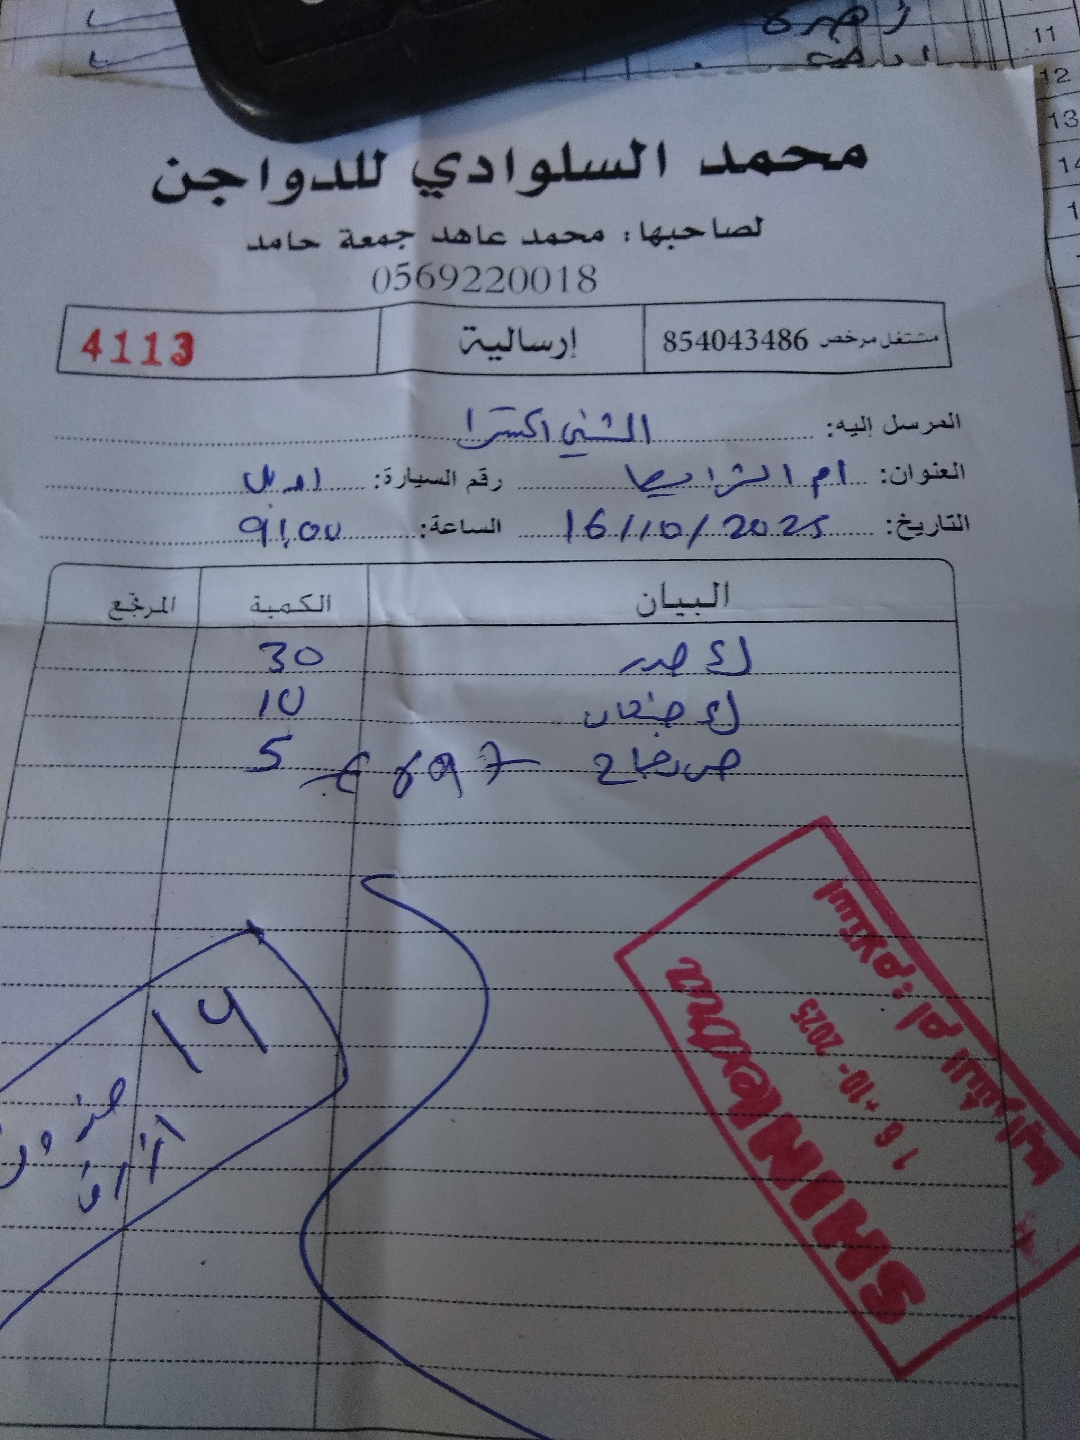 زهرة
11
12
13
14
محمد السلوادي للدواجن
لصاحبها: محمد عاهد جمعة حامد
0569220018
مشتغل مرخص 854043486
إرسالية
4113
المرسل إليه: الشني اكسترا
العنوان: ام الشرايط رقم السيارة:
التاريخ: 16/10/2025 الساعة: 9:00
البيان الكمية المرتجع
ك صدر 30
ك جنحان 10
دجاج 5
697
14
صندوق
ازرق
SHINI extra
16 -10- 2025
استلام: ام الشرايط